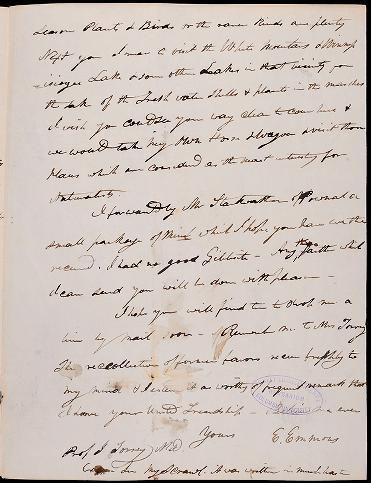 season Plants & Birds or the rare kinds are plenty
Next year I mean to visit the White Mountains & Winnip
-isiogee Lake & some other Lakes in that vicinity for
the sake of the Fresh water Shells & plants in the marshes
I wish you could see your way clear to come here &
we would take my own Horse & wagon & visit those
places which are considered as the most interesting for
Naturalists.
I forwarded by Mr of a
small package of which I hope you have
received. I had no good Gibbsite - Any thing which
I can send you will be done with pleasure -
I hope you will find time to drop me a
line by mail soon - Remember me to Mrs Torrey
The recollection of former favors recur to
my mind & I it a worthy of remark that
I have your United Friendship - ever
Yours E. Emmons
Prof J. Torrey M.D.
my Scrawl it was written in much haste